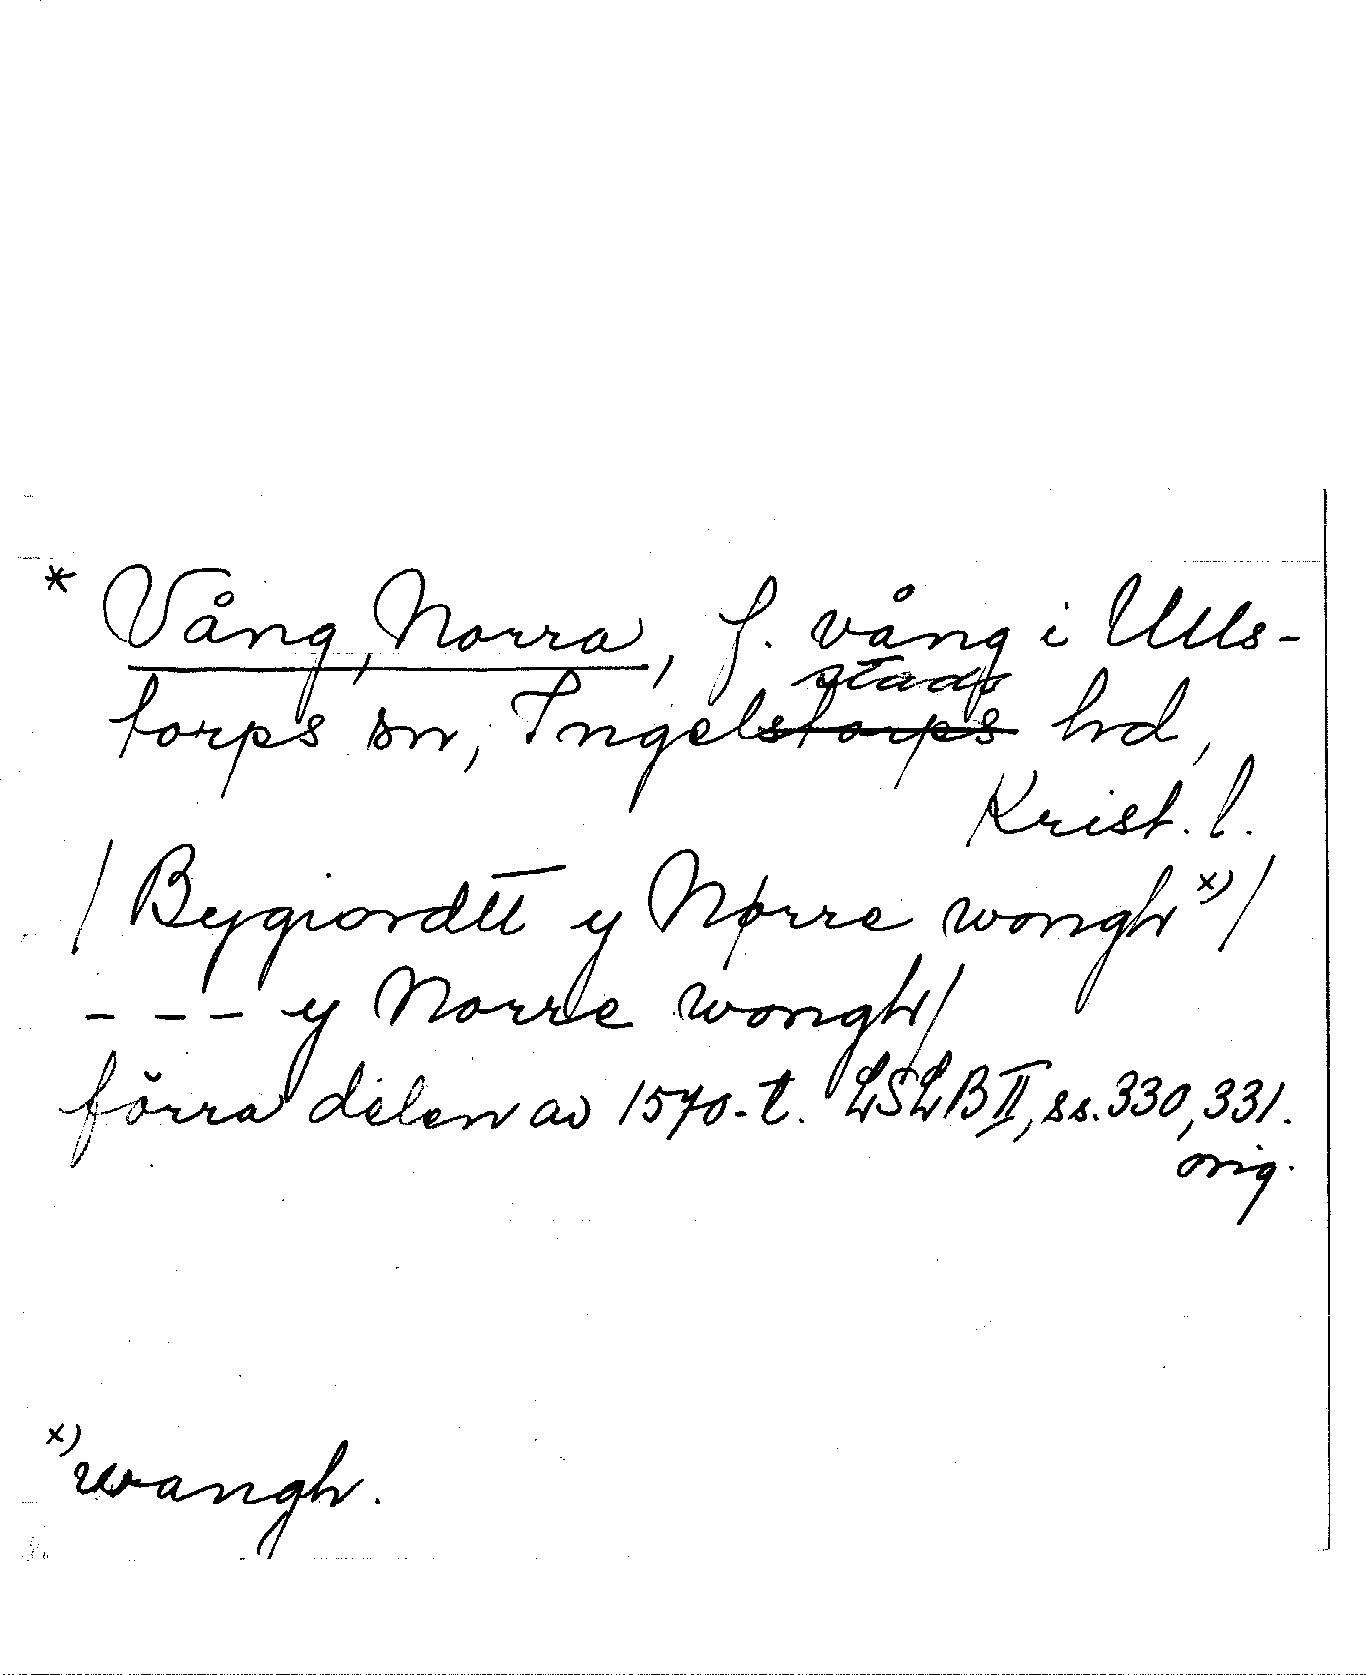 * Vång, Norra, f. vång i Ulls-
stads
torps sn, Ingelstorps hd,
Krist. l.
/ Bygiordtt y Nørre wongh x) /
- - - y Norre wongh/
förra delen av 1570-t. LSLB II, ss. 330, 331.
orig.
x) wangh.